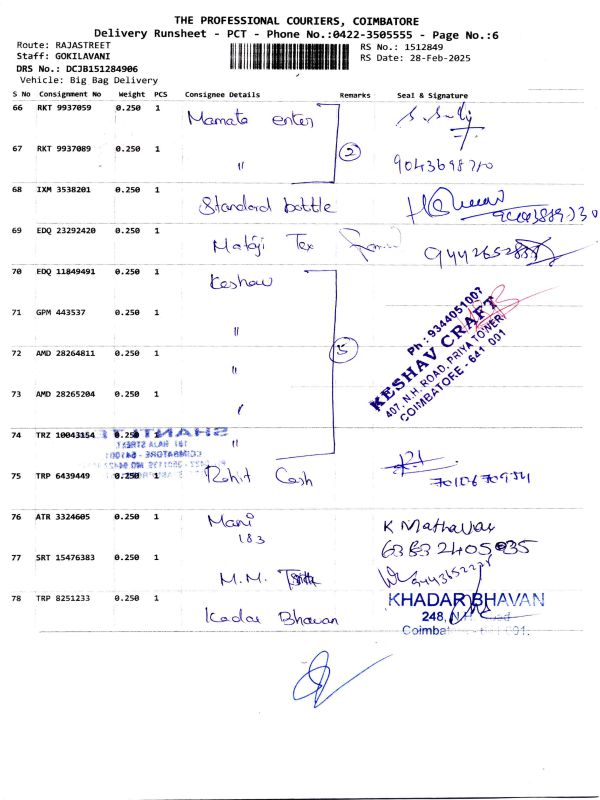 THE PROFESSIONAL COURIERS, COIMBATORE
Delivery Runsheet - PCT - Phone No.:0422-3505555 - Page No.:6
Route: RAJASTREET RS No.: 1512849
Staff: GOKILAVANI RS Date: 28-Feb-2025
DRS No.: DCJB151284906
Vehicle: Big Bag Delivery
S No Consignment No Weight PCS Consignee Details Remarks Seal & Signature
66 RKT 9937059 0.250 1 Mamata enter
67 RKT 9937089 0.250 1 " 2
68 IXM 3538201 0.250 1 Standard bottle
69 EDQ 23292420 0.250 1 Mataji Tex
70 EDQ 11849491 0.250 1 Keshav
71 GPM 443537 0.250 1 "
72 AMD 28264811 0.250 1 " 5
73 AMD 28265204 0.250 1 "
Ph : 9344051007
KESHAV CRAFT
407, N.H. ROAD, PRIYA TOWER
COIMBATORE - 641 001
74 TRZ 10043154 0.250 1 "
75 TRP 6439449 0.250 1 Rohit Cash
76 ATR 3324605 0.250 1 Mani K Mathavan
183
77 SRT 15476383 0.250 1 M.M.
78 TRP 8251233 0.250 1 Kadar Bhavan
KHADAR BHAVAN
248, N.H